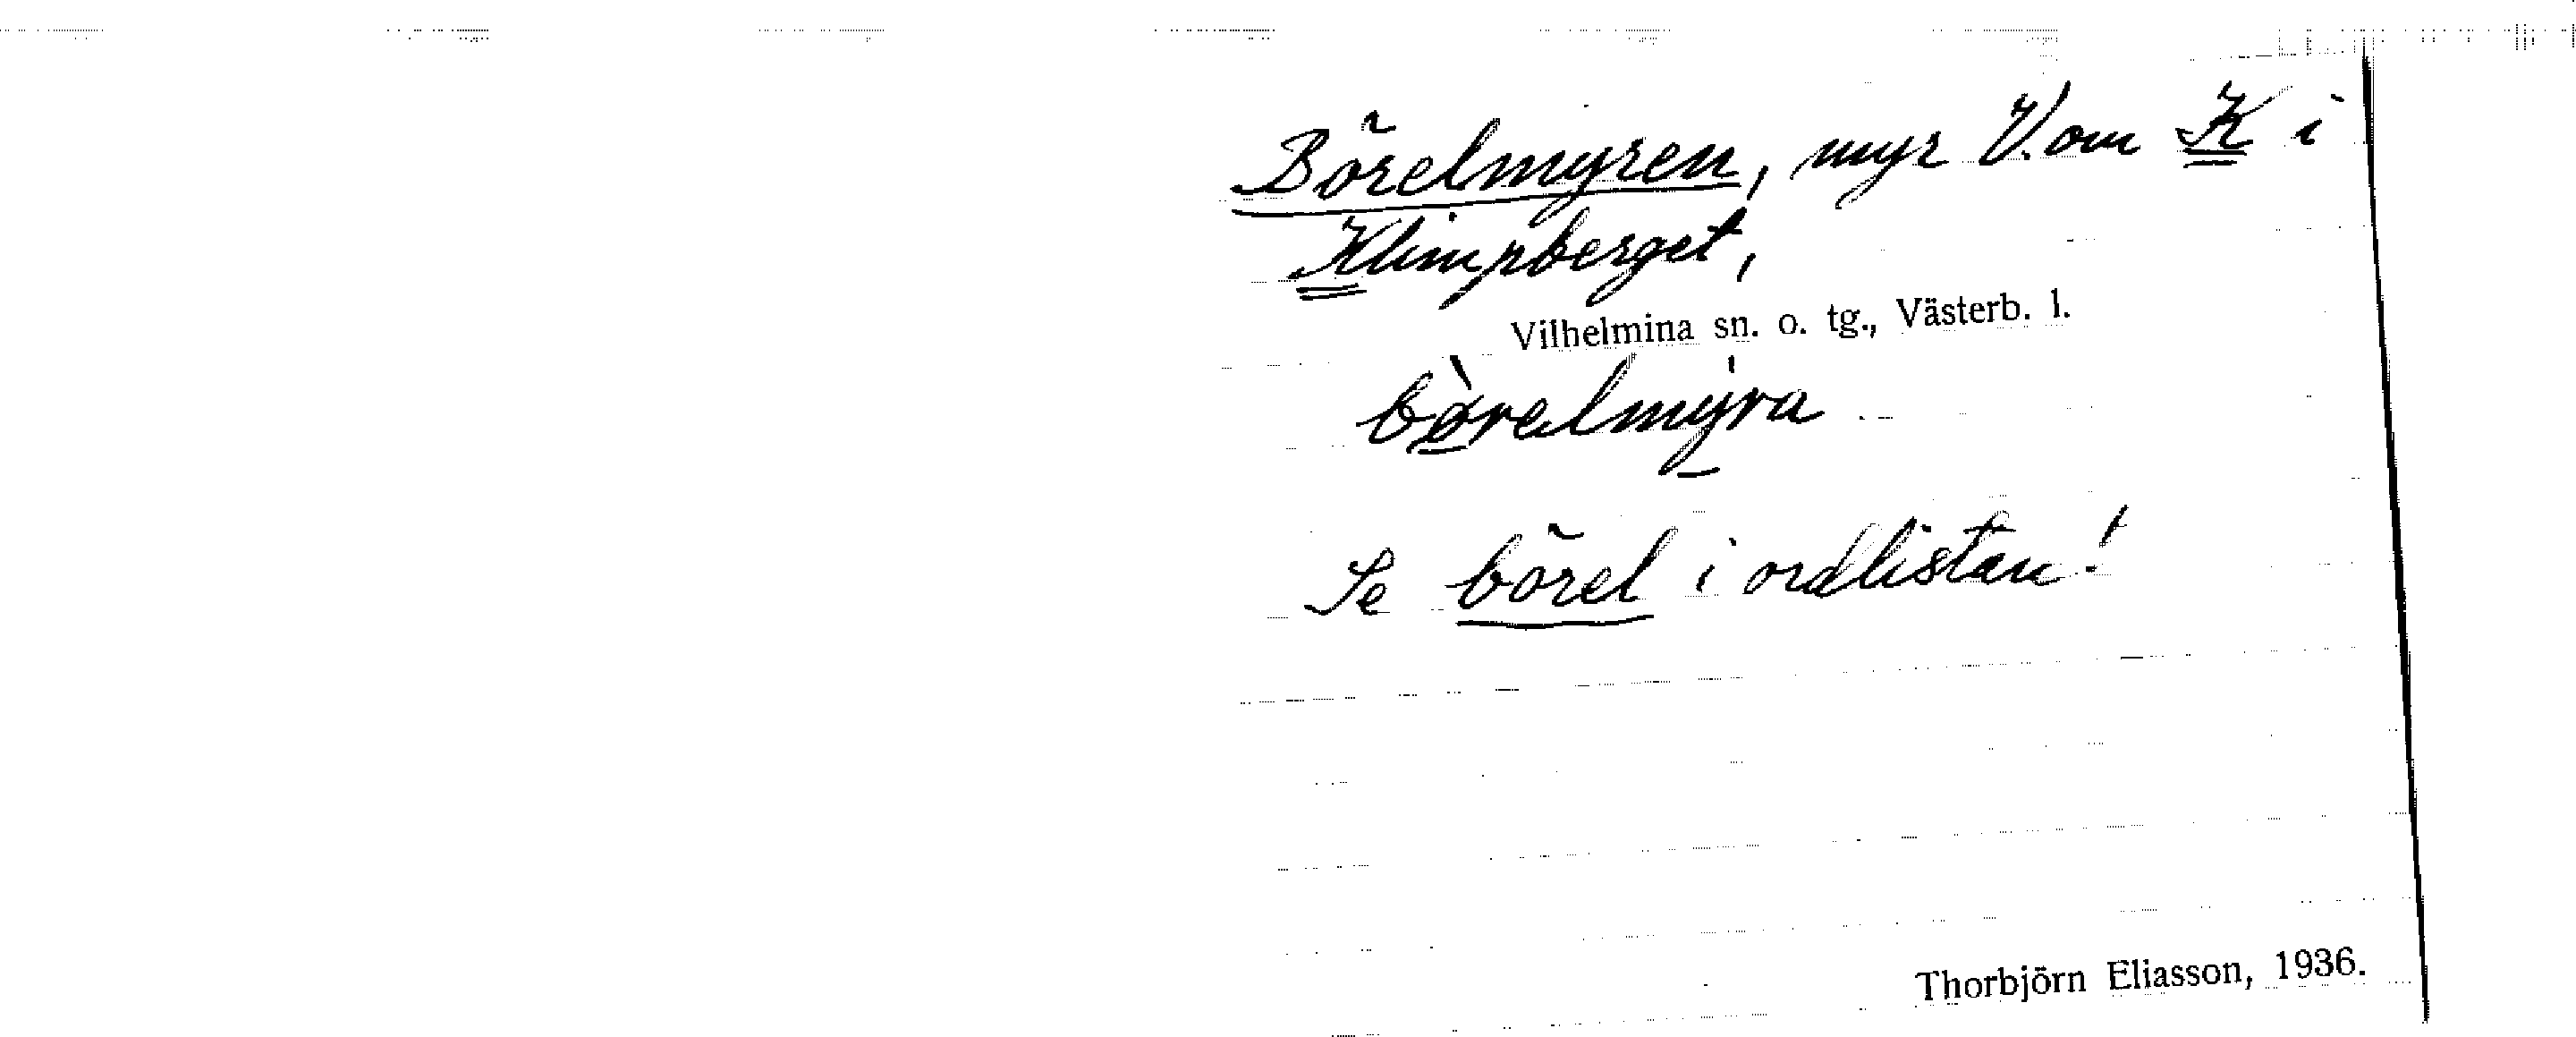 Börelmyren, myr V. om K i
Klimpberget,
Vilhelmina sn. o. tg., Västerb. l.
bø̀relmýra
Se börel i ordlistan!
Thorbjörn Eliasson, 1936.